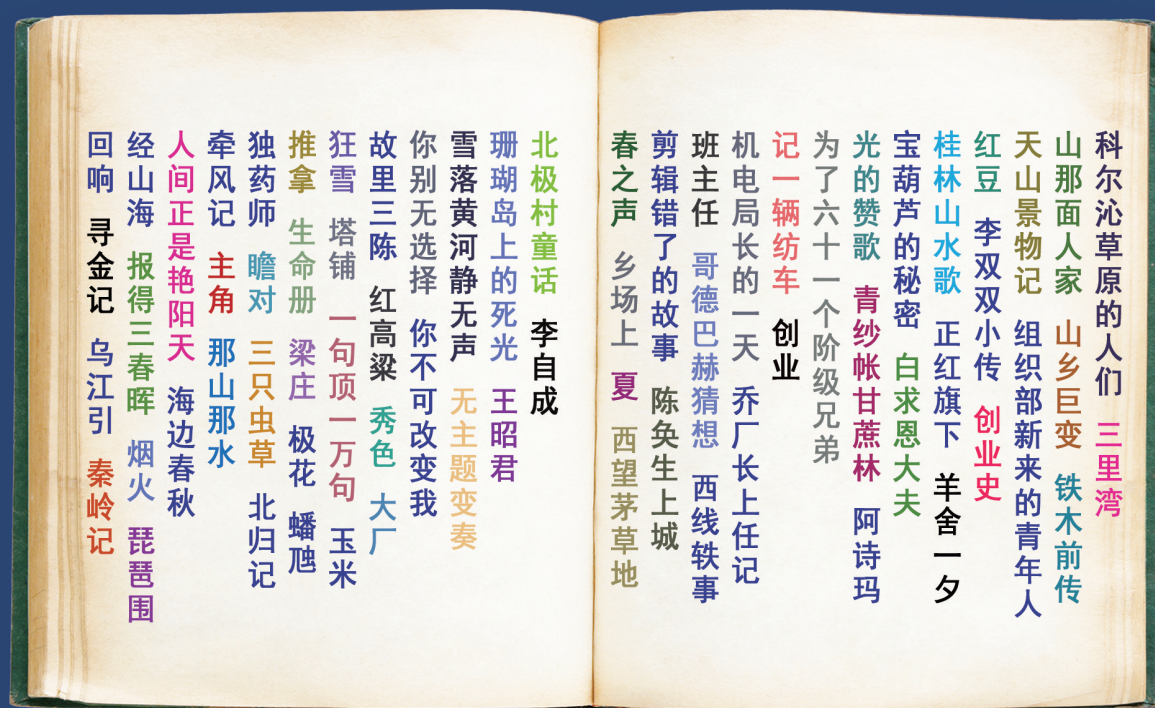 科尔沁草原的人们 三里湾
山那面人家 山乡巨变 铁木前传
天山景物记 组织部新来的青年人
红豆 李双双小传 创业史
桂林山水歌 正红旗下 羊舍一夕
宝葫芦的秘密 白求恩大夫
光的赞歌 青纱帐甘蔗林 阿诗玛
为了六十一个阶级兄弟
记一辆纺车 创业
机电局长的一天 乔厂长上任记
班主任 哥德巴赫猜想 西线轶事
剪辑错了的故事 陈奂生上城
春之声 乡场上 夏 西望茅草地
北极村童话 李自成
珊瑚岛上的死光 王昭君
雪落黄河静无声 无主题变奏
你别无选择 你不可改变我
故里三陈 红高粱 秀色 大厂
狂雪 塔铺 一句顶一万句 玉米
推拿 生命册 梁庄 极花 蟠虺
独药师 瞻对 三只虫草 北归记
牵风记 主角 那山那水
人间正是艳阳天 海边春秋
经山海 报得三春晖 烟火 琵琶围
回响 寻金记 乌江引 秦岭记